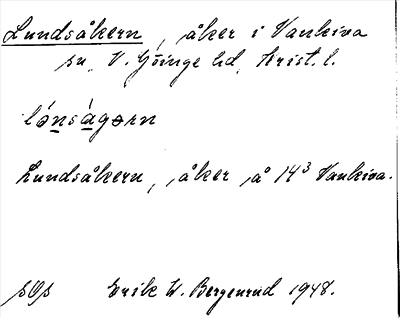 Lundsåkern, åker i Vankiva
sn, V. Göinge hd, Krist. l.
lónsågørn
Lundsåkern, åker å 14³ Vankiva.
Erik W. Bergenrud 1948.